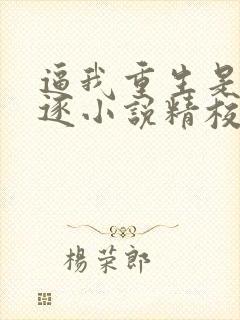 逼我重生是
逐小說精校
楊荣郎